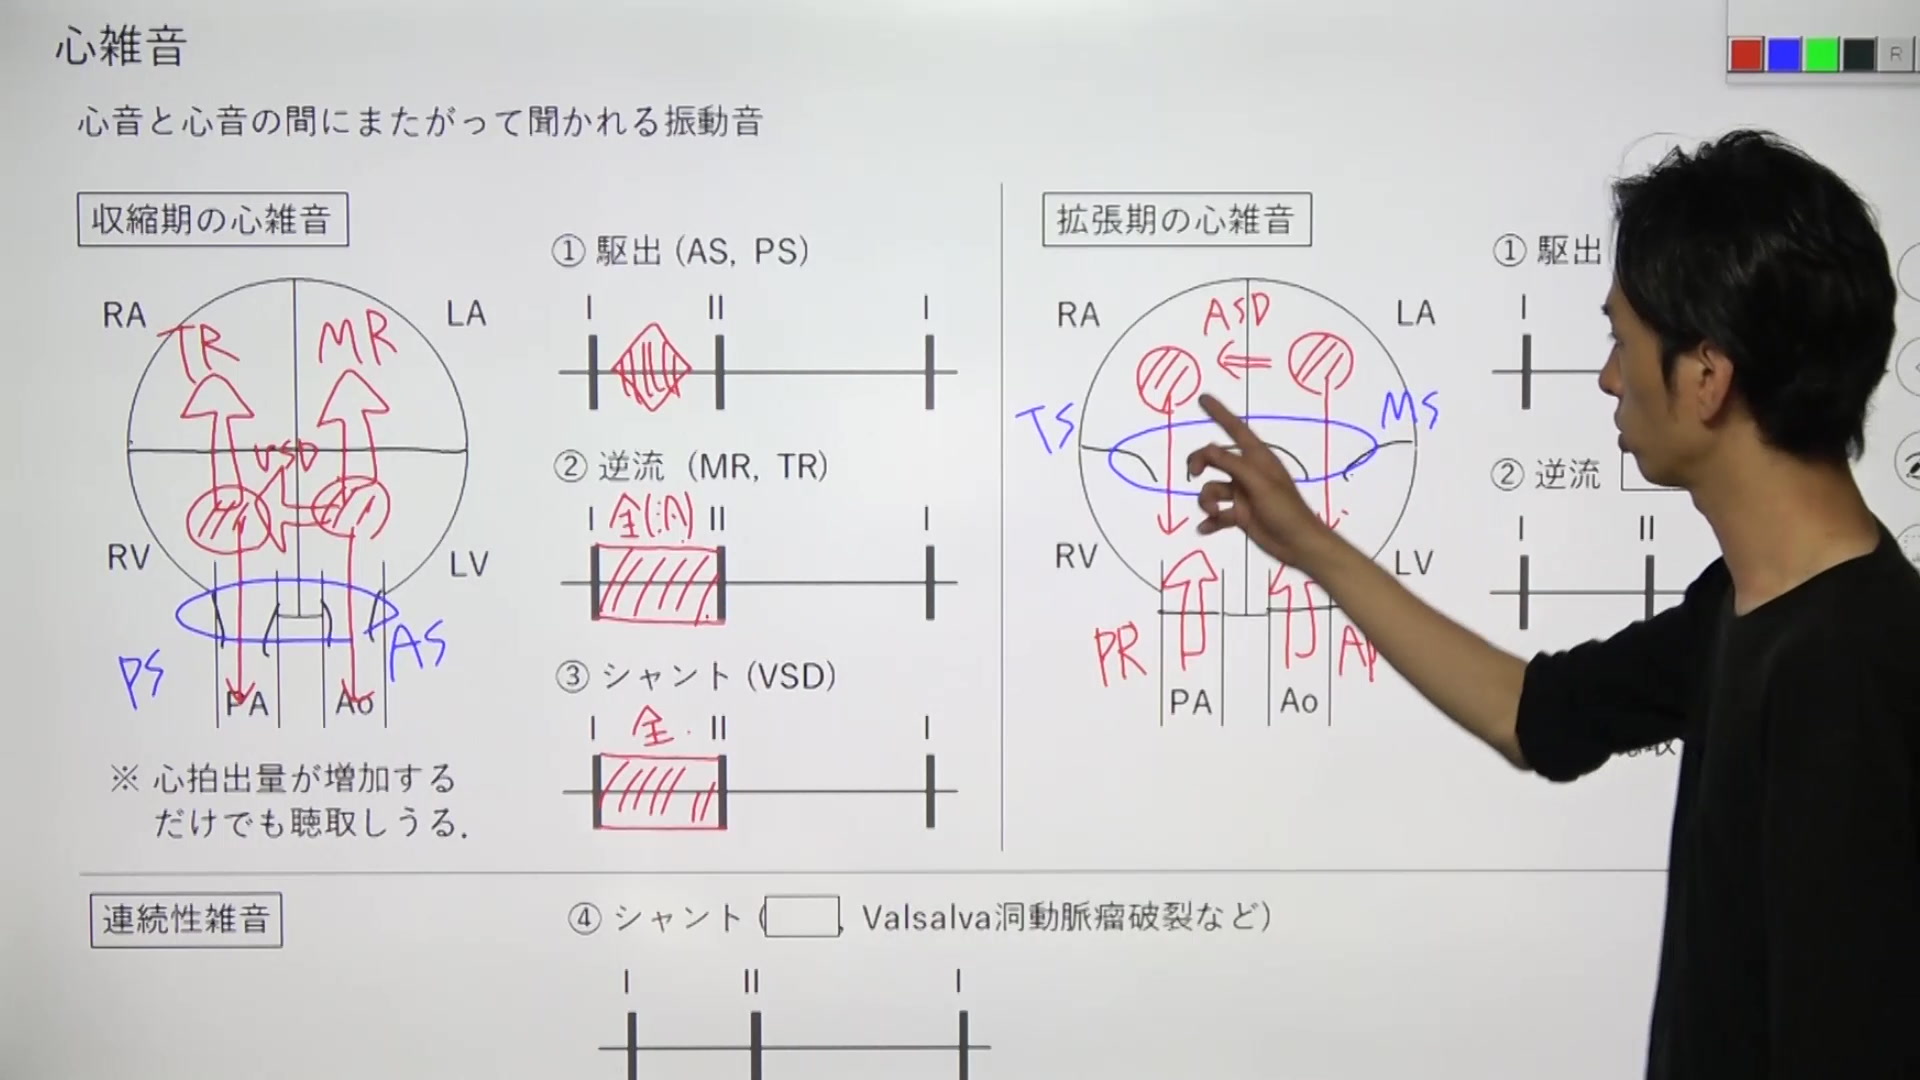 心雑音
心音と心音の間にまたがって聞かれる振動音
収縮期の心雑音
RA
LA
TR
MR
VSD
RV
LV
PS
AS
PA
Ao
※ 心拍出量が増加する
だけでも聴取しうる.
① 駆出 (AS, PS)
I II I
② 逆流 (MR, TR)
全(汎)
I II I
③ シャント (VSD)
全
I II I
拡張期の心雑音
RA
LA
ASD
TS
MS
RV
LV
PR
PA
Ao
① 駆出
I
② 逆流
I II
連続性雑音
④ シャント ( , Valsalva洞動脈瘤破裂など)
I II I
R